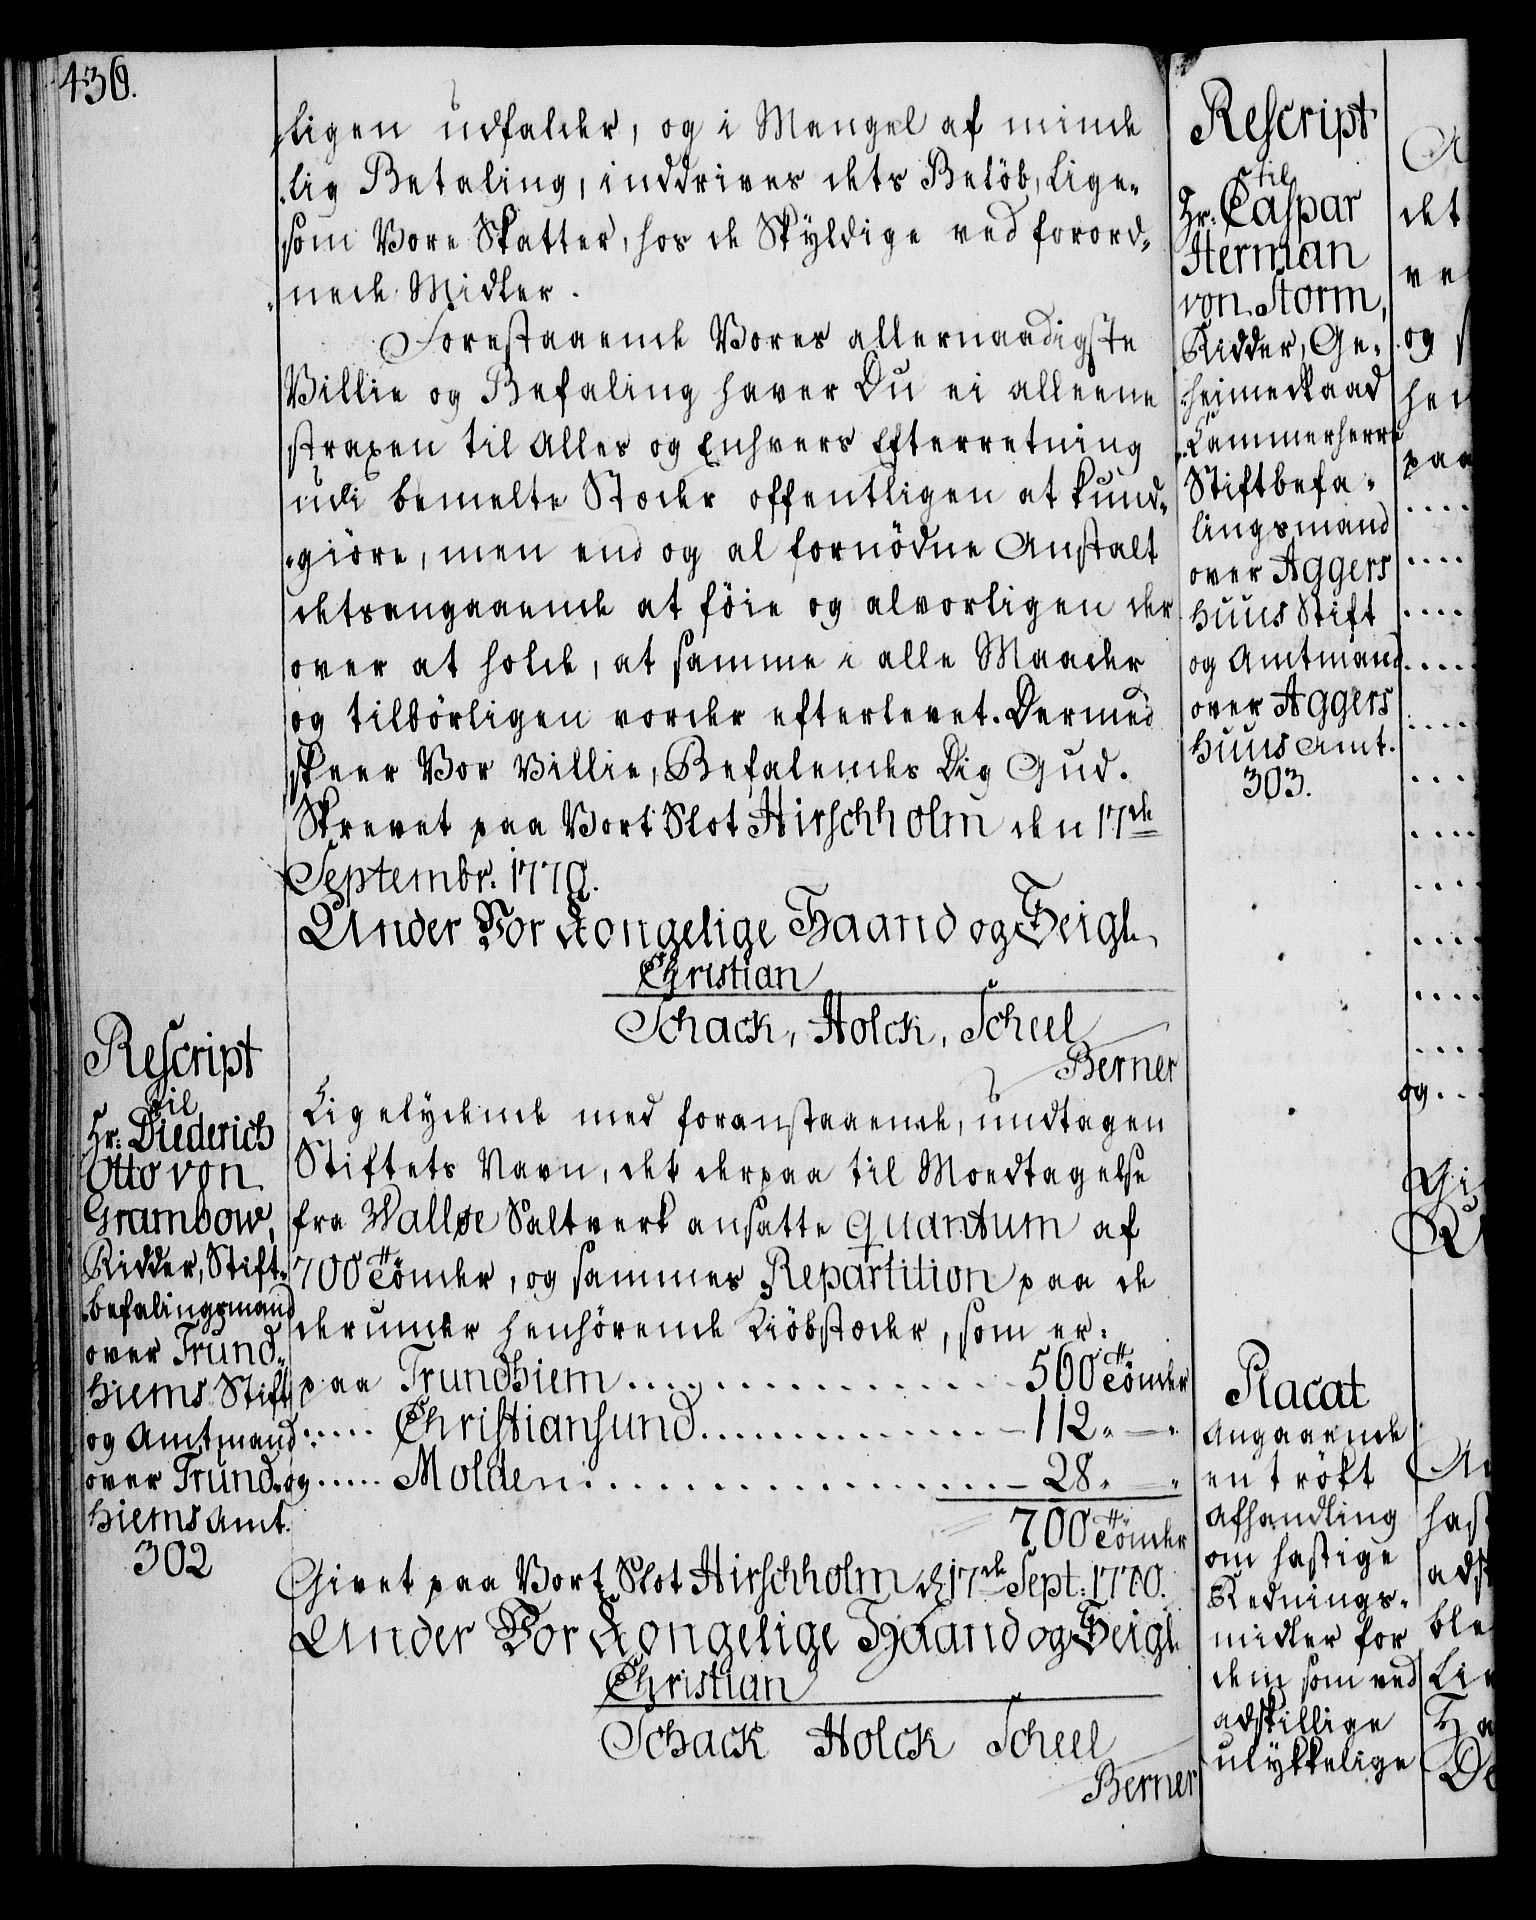 430.
ligen udfalder, og i Mangel af minde
lig Betaling, inddrives dets Beløb, lige-
som Vore Skatter, hos de Skyldige ved forord-
nede Midler.
Forestaaende Vores allernaadigste
Villie og Befaling haver Du ei alleene
straxen til Alles og Enhvers Efterretning
udi bemelte Stæder offentligen at kund-
giøre, men end og al fornødne Anstalt
detsangaaende at føie og alvorligen der
over at holde, at samme i alle Maader
og tilbørligen vorder efterlevet. Dermed
skeer Vor Villie, Befalendes Dig Gud.
Skrevet paa Vort Slot Hirschholm den 17de
Septembr. 1770.
Under Vor Kongelige Haand og Seigl.
Christian
Schack, Holck, Scheel
Berner
Rescript
til
Hr. Diederich
Otto von
Grambow,
Ridder, Stift-
befalingsmand
over Trund-
hiems Stift
og Amtmand
over Trund-
hiems Amt.
302
Ligelydende med foranstaaende, undtagen
Stiftets Navn, det derpaa til Modtagelse
fra Walløe Saltverk ansatte quantum af
700 Tt Tønder, og sammes Repartition paa de
derunder henhørende Kiøbstæder, som er:
paa Trundhiem ............... 560 Tt Tønder
..... Christiansund ............... 112 " — "
og ..... Molden ............... 28 " — "
700 Tt Tønder
Givet paa Vort Slot Hirschholm d. 17de Sept: 1770.
Under Vor Kongelige Haand og Seigl.
Christian
Schack Holck Scheel
Berner
Rescript
til
Hr. Caspar
Herman
von Storm,
Ridder, Ge-
heimeraad
Cammerherre
Stiftbefa-
lingsmand
over Aggers
huus Stift
og Amtmand
over Aggers
huus Amt.
303.
Placat
Angaaende
en trykt
Afhandling
om hastige
Rednings-
midler for
dem som ved
adskillige
ulykkelige
det
og
paa
og